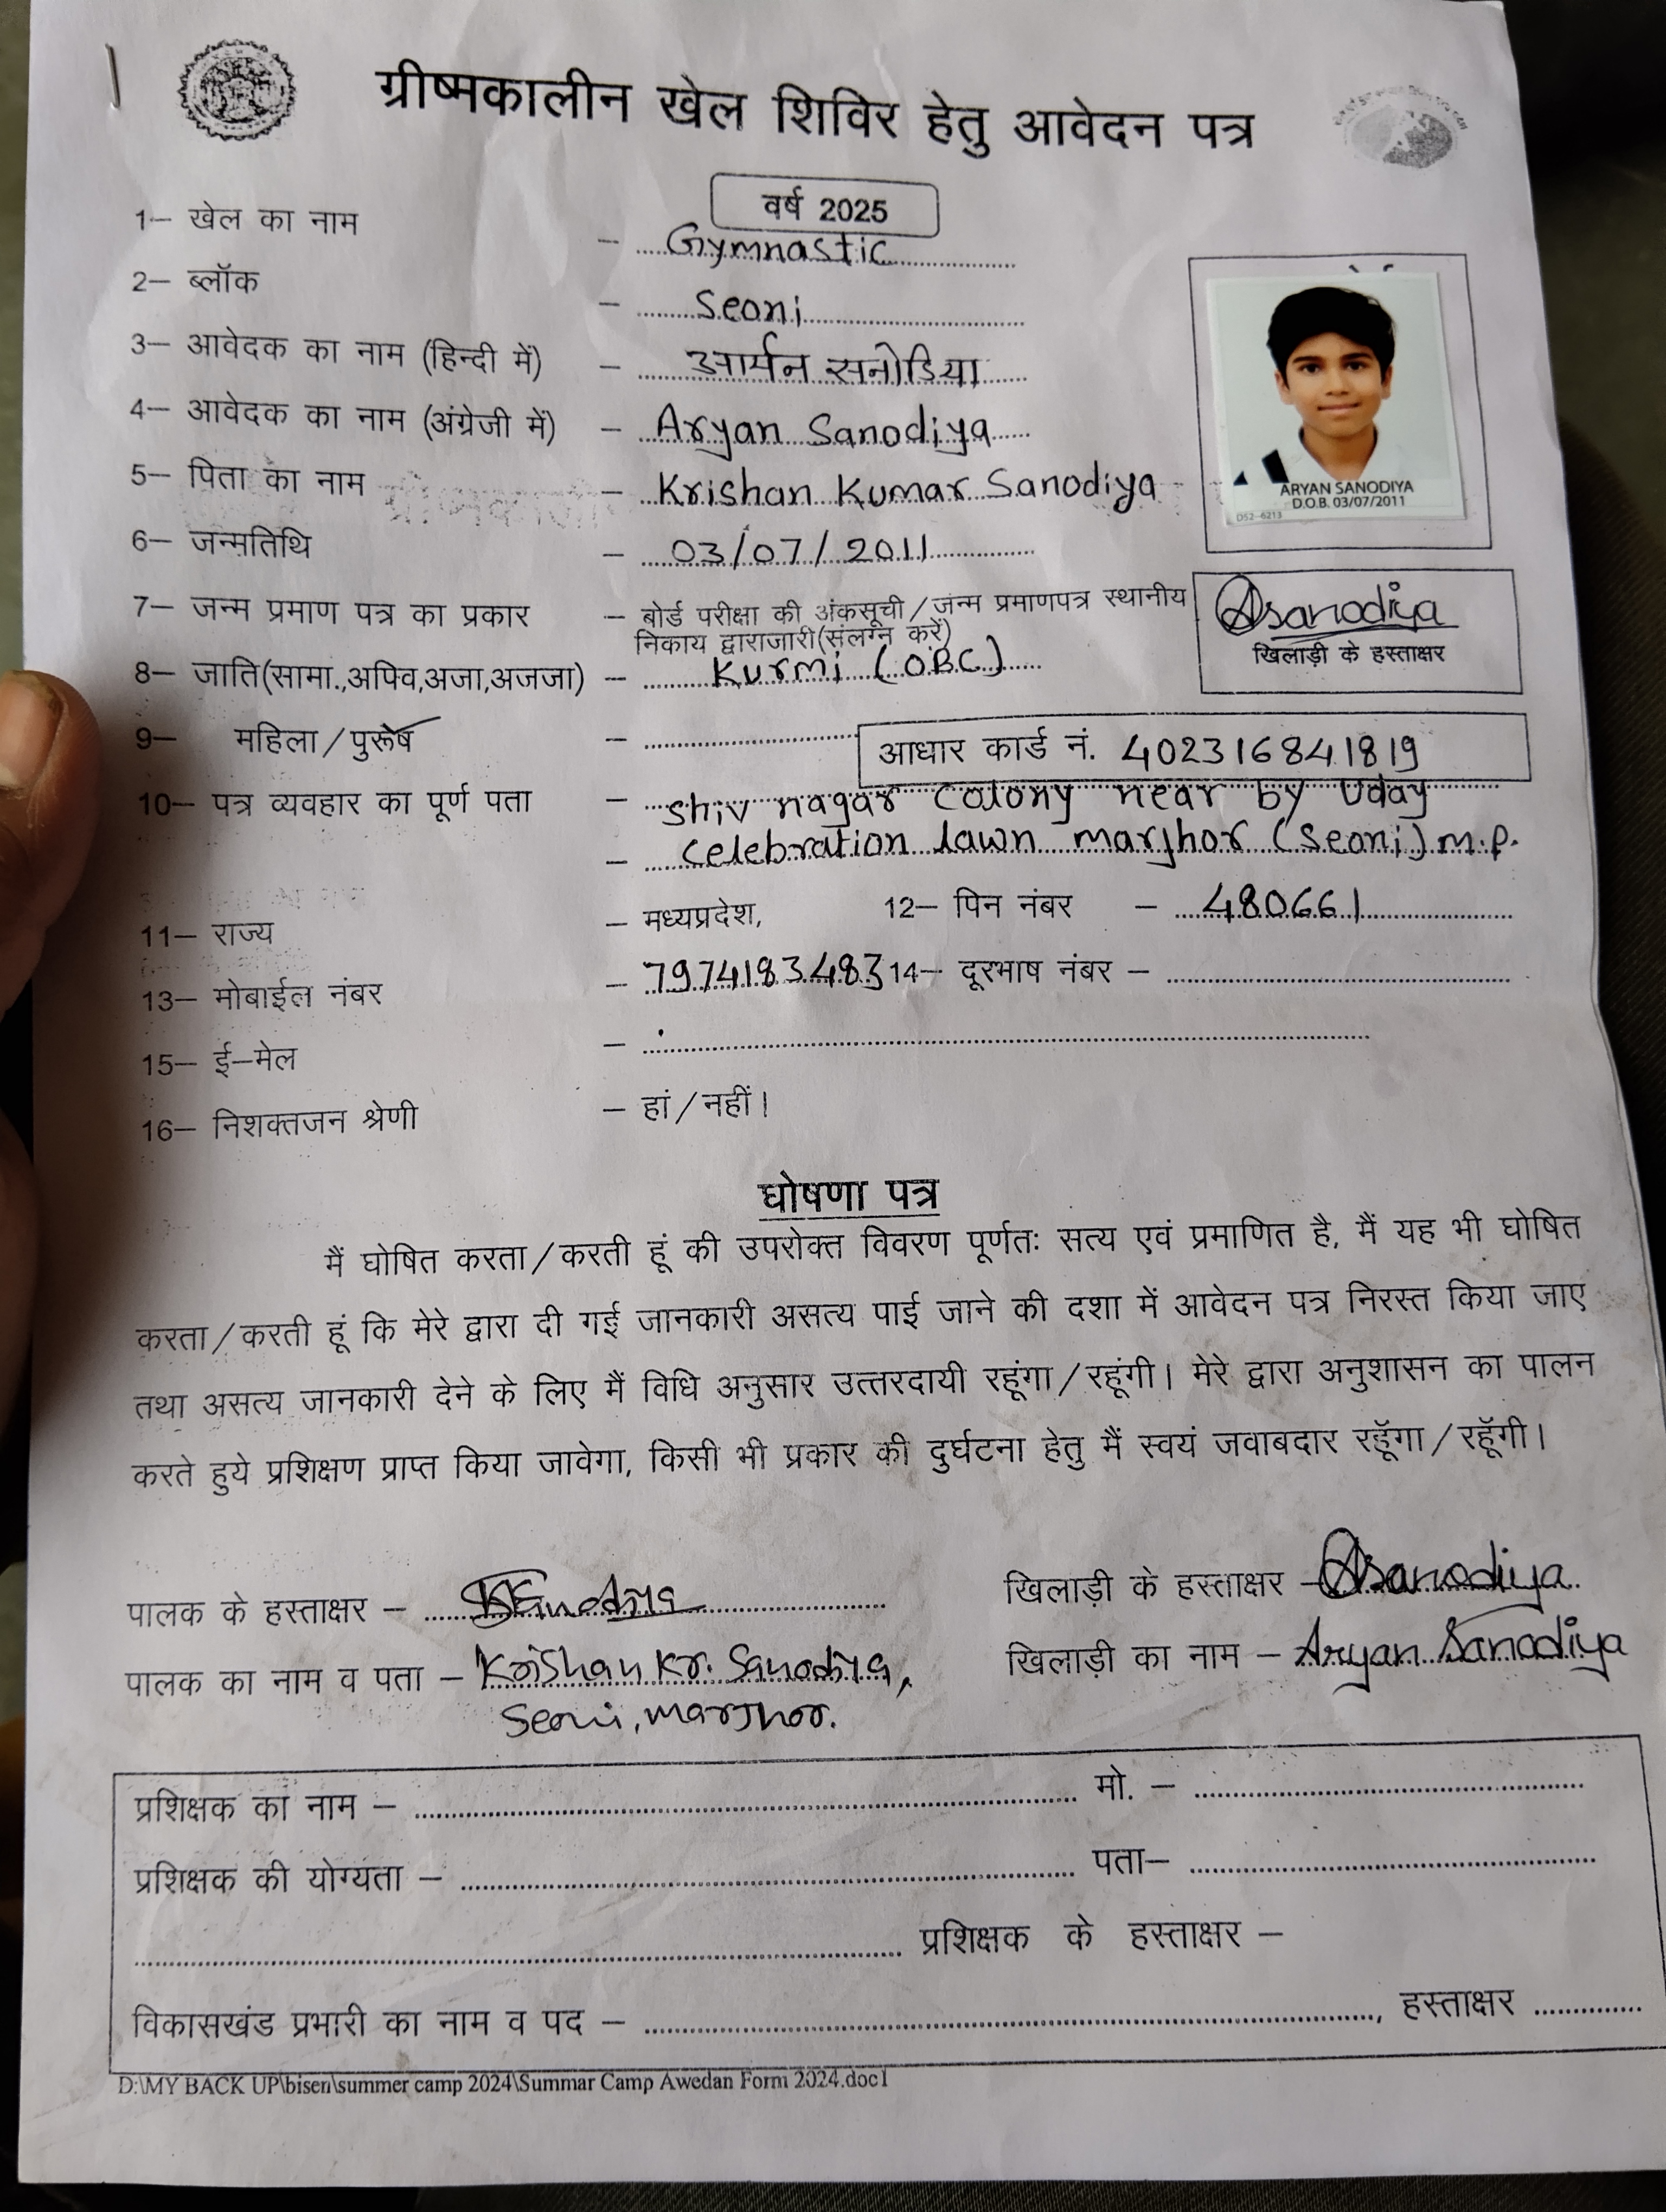 ग्रीष्मकालीन खेल शिविर हेतु आवेदन पत्र
वर्ष 2025
1– खेल का नाम – Gymnastic
2– ब्लॉक – Seoni
3– आवेदक का नाम (हिन्दी में) – आर्यन सनोडिया
4– आवेदक का नाम (अंग्रेजी में) – Aryan Sanodiya
5– पिता का नाम – Krishan Kumar Sanodiya
ARYAN SANODIYA
D.O.B. 03/07/2011
DS2-6213
6– जन्मतिथि – 03/07/2011
7– जन्म प्रमाण पत्र का प्रकार – बोर्ड परीक्षा की अंकसूची/जन्म प्रमाणपत्र स्थानीय
निकाय द्वाराजारी(संलग्न करें)
Asanodiya
खिलाड़ी के हस्ताक्षर
8– जाति(सामा.,अपिव,अजा,अजजा) – Kurmi (OBC)
9– महिला/पुरूष –
आधार कार्ड नं. 402316841819
10– पत्र व्यवहार का पूर्ण पता – shiv nagar colony near by Uday
– celebration lawn marjhor (seoni) m.p.
11– राज्य – मध्यप्रदेश, 12– पिन नंबर – 480661
13– मोबाईल नंबर – 7974183483 14– दूरभाष नंबर –
15– ई–मेल –
16– निशक्तजन श्रेणी – हां/नहीं।
घोषणा पत्र
मैं घोषित करता/करती हूं की उपरोक्त विवरण पूर्णतः सत्य एवं प्रमाणित है, मैं यह भी घोषित
करता/करती हूं कि मेरे द्वारा दी गई जानकारी असत्य पाई जाने की दशा में आवेदन पत्र निरस्त किया जाए
तथा असत्य जानकारी देने के लिए मैं विधि अनुसार उत्तरदायी रहूंगा/रहूंगी। मेरे द्वारा अनुशासन का पालन
करते हुये प्रशिक्षण प्राप्त किया जावेगा, किसी भी प्रकार की दुर्घटना हेतु मैं स्वयं जवाबदार रहूॅगा/रहूॅगी।
पालक के हस्ताक्षर – खिलाड़ी के हस्ताक्षर – Asanodiya
पालक का नाम व पता – Krishan Kr. Sanodiya, खिलाड़ी का नाम – Aryan Sanodiya
Seoni, marjhor.
प्रशिक्षक का नाम – मो. –
प्रशिक्षक की योग्यता – पता–
प्रशिक्षक के हस्ताक्षर –
विकासखंड प्रभारी का नाम व पद – , हस्ताक्षर
D:\MY BACK UP\bisen\summer camp 2024\Summar Camp Awedan Form 2024.doc1